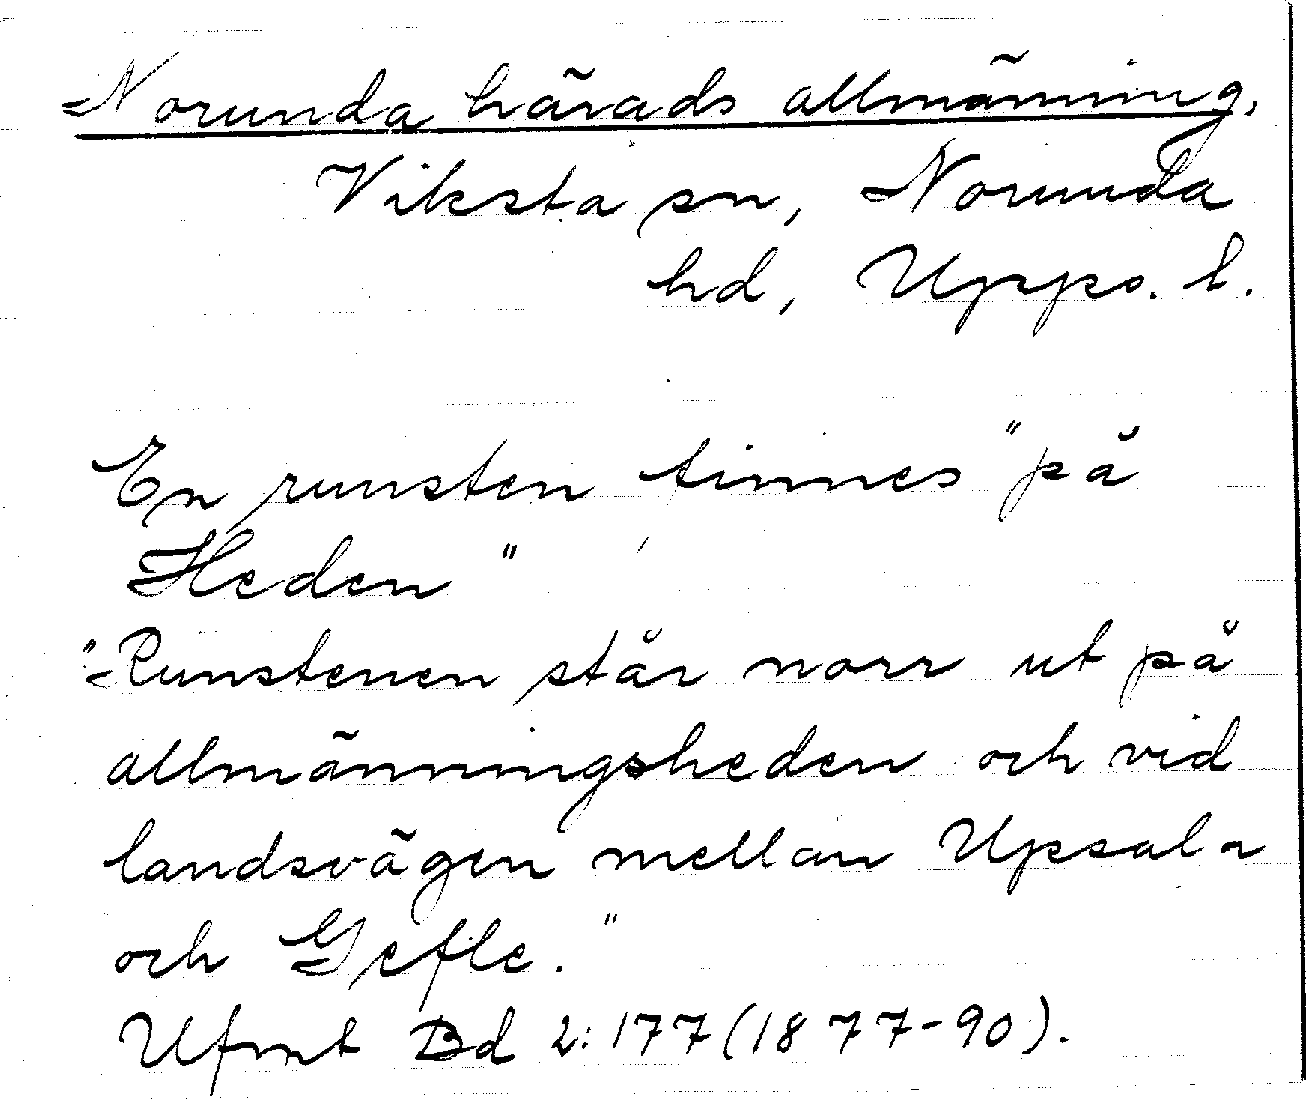 Norunda härads allmänning,
Viksta sn, Norunda
hd, Upps. l.
En runsten finnes "på
Heden"
"Runstenen står norr ut på
allmänningsheden och vid
landsvägen mellan Upsala
och Gefle."
Ufmt Bd 2:177(1877-90).